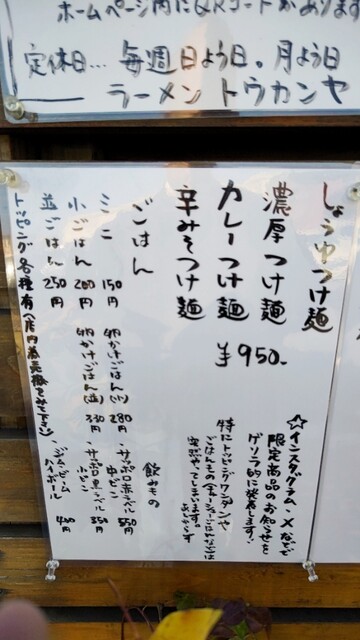 ホームページ内にQRコードがあります
定休日… 毎週日よう日。月よう日
ラーメン トウカンヤ
しょうゆつけ麺
濃厚つけ麺
カレーつけ麺 ¥950-
辛みそつけ麺
☆インスタグラム・Xなどで
限定商品のお知らせを
ゲリラ的に発表します!
特にトッピングワンタンや
ごはんもの
突然やってきます。あしからず
ごはん
ミニ 150円
小ごはん 200円
並ごはん 250円
卵かけごはん(小) 280円
卵かけごはん(並) 330円
トッピング各種有(店内券売機をみて下さい)
飲みもの
・サッポロ赤ラベル 中びん 550
・サッポロ黒ラベル 小びん 350
・ジムビームハイボール 400